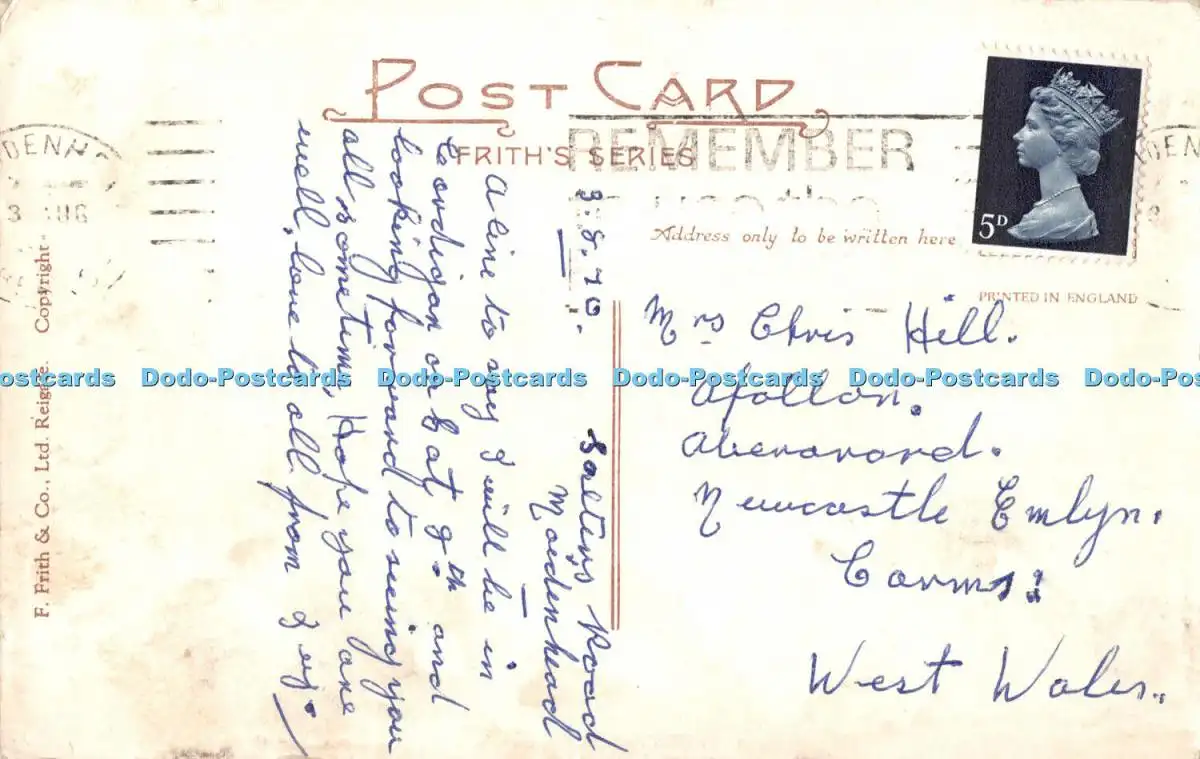 POST CARD
FRITH'S SERIES
REMEMBER
Address only to be written here
5D
PRINTED IN ENGLAND
DENH
3 AUG
F. Frith & Co., Ltd. Reigate. Copyright
3.8.70.
Road
Maidenhead
A line to say I will be in
Cardigan on Sat 8th and
looking forward to seeing you
all sometime, Hope you are
well, love to all from
Mrs Chris Hill.
Apollon.
Newcastle Emlyn.
Carms:
West Wales.
Dodo-Postcards Dodo-Postcards Dodo-Postcards Dodo-Postcards Dodo-Postcards Dodo-Postcards